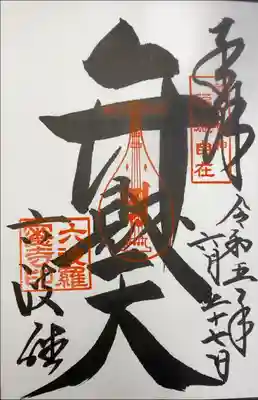 奉拝
自在
令和五年
六月二十七日
弁財天
六波羅
蜜寺
六波